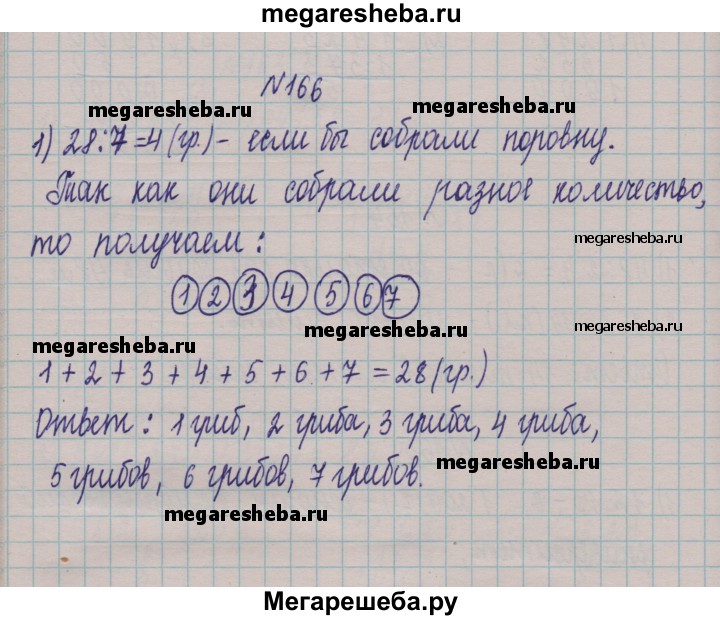 megaresheba.ru
N166
megaresheba.ru megaresheba.ru
1) 28:7=4 (гр.) - если бы собрали поровну.
Так как они собрали разное количество,
то получаем:
megaresheba.ru
1 2 3 4 5 6 7
megaresheba.ru megaresheba.ru
megaresheba.ru
1 + 2 + 3 + 4 + 5 + 6 + 7 = 28 (гр.)
Ответ: 1 гриб, 2 гриба, 3 гриба, 4 гриба,
megaresheba.ru
5 грибов, 6 грибов, 7 грибов.
megaresheba.ru
Мегарешеба.ру